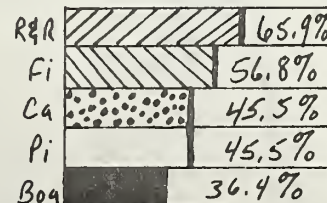 R&R 65.9%
Fi 56.8%
Ca 45.5%
Pi 45.5%
Boa 36.4%